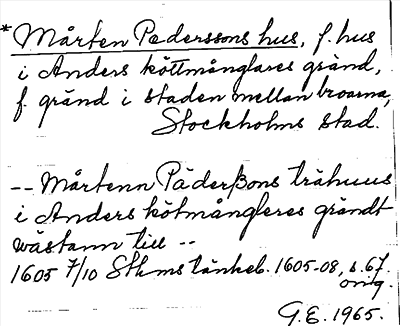 * Mårten Pederssons hus, f. hus
i Anders köttmånglares gränd,
f. gränd i staden mellan broarna,
Stockholms stad.
-- Mårtenn Päderßons trähuus
i Anders kötmångleres grändt
wästann till --
1605 7/10 Sthms tänkeb. 1605-08, s. 67.
orig.
G.E. 1965.